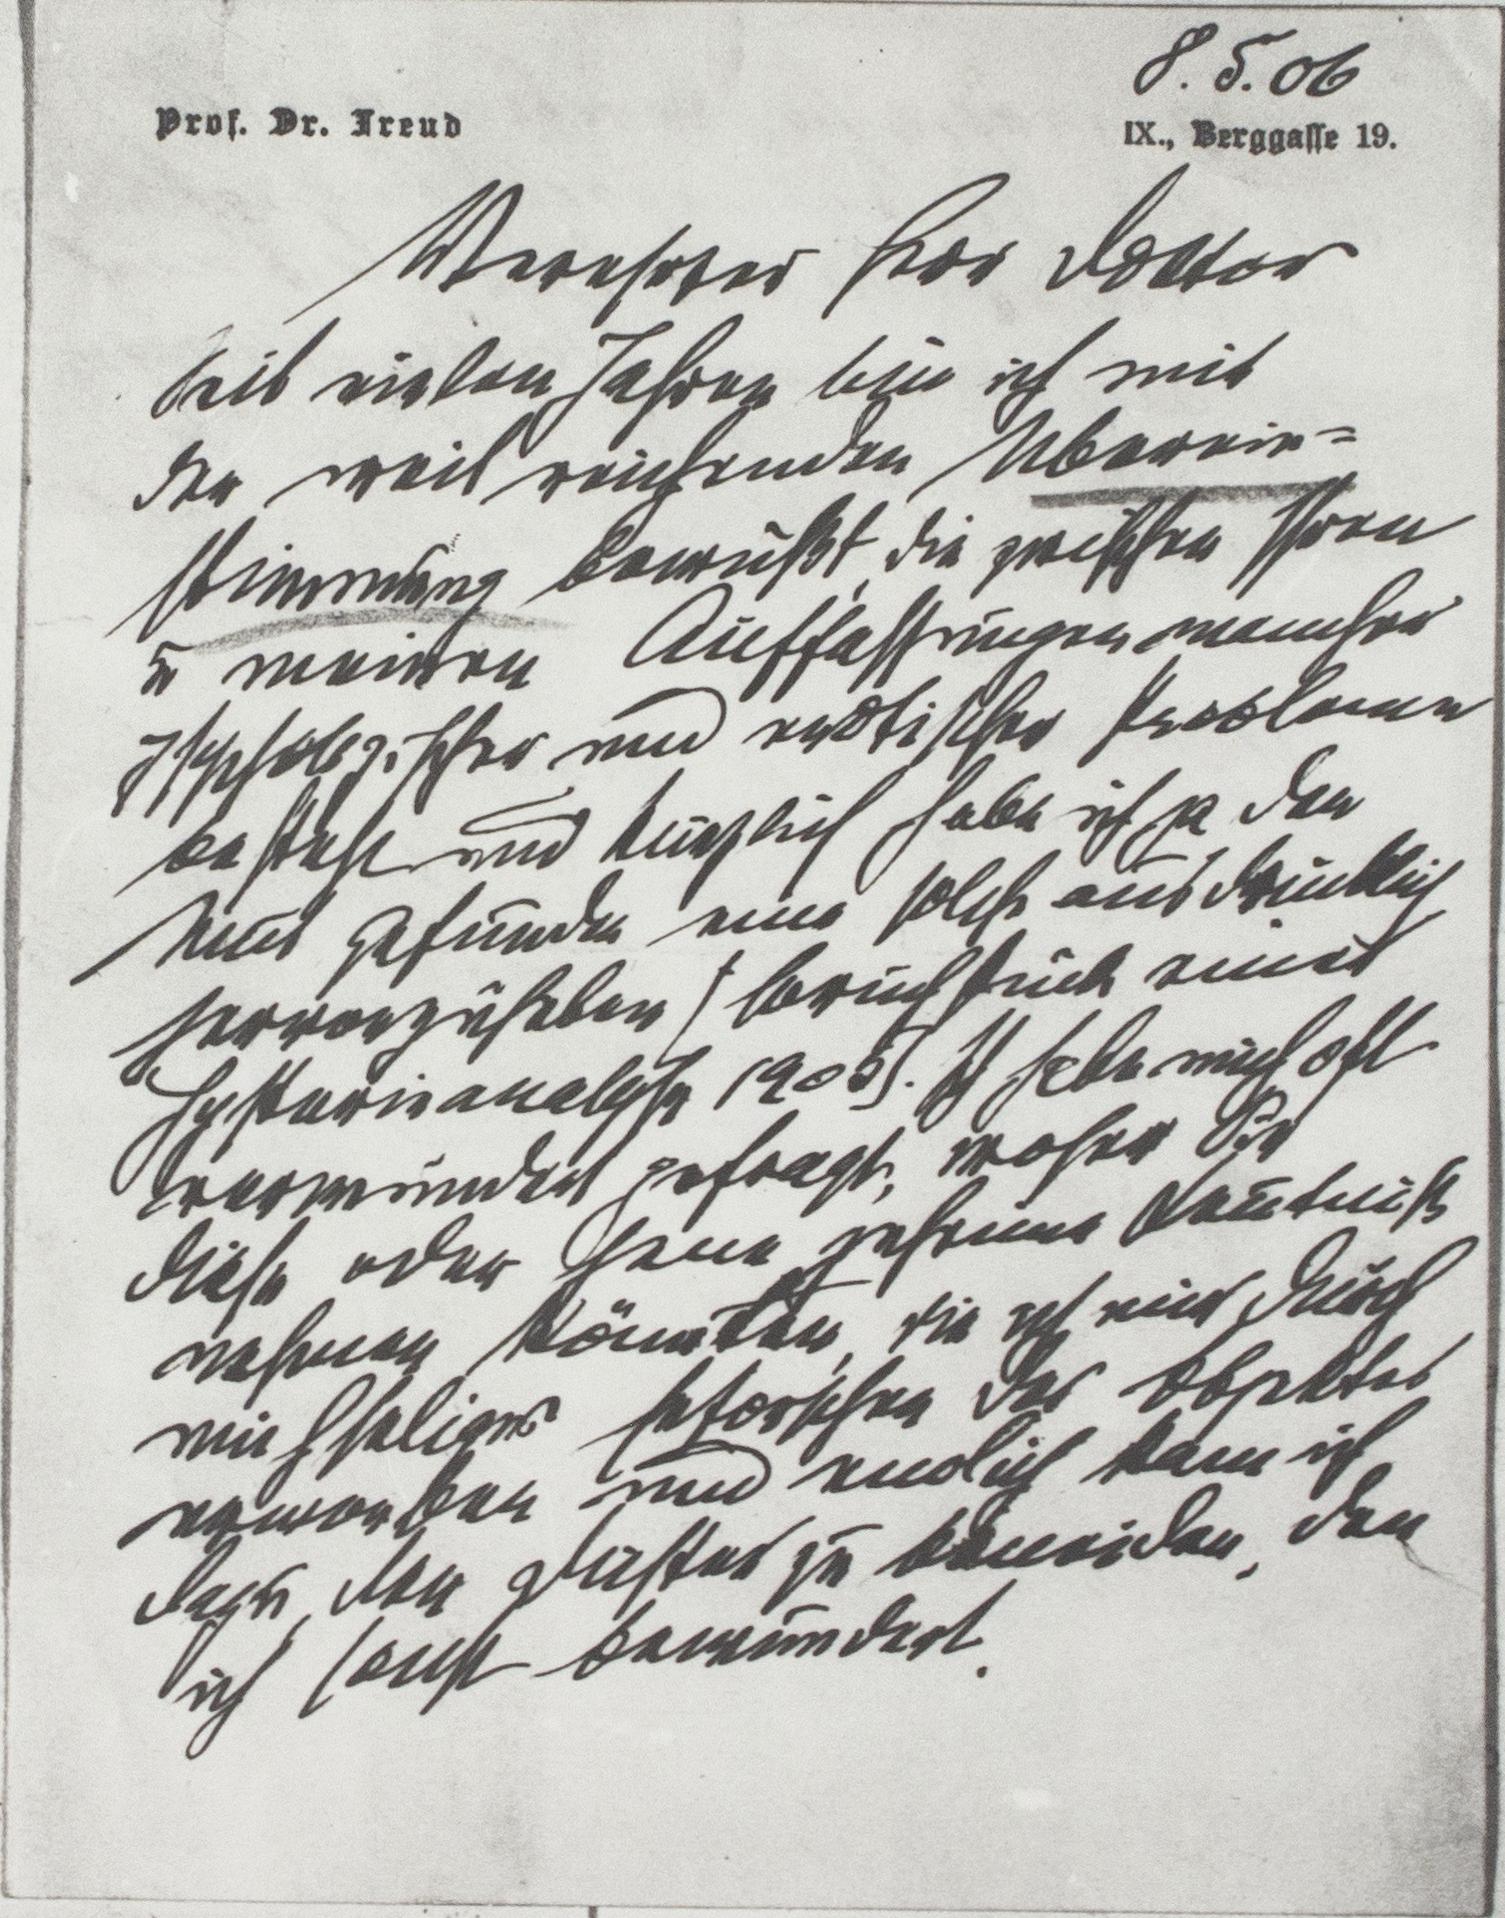 8. 5. 06
Prof. Dr. Freud
IX., Berggasse 19.
Verehrter Herr Doktor
Seit vielen Jahren bin ich mit
der weit reichenden Überein=
stimmung bewußt, die zwischen Ihren
u meinen Auffassungen mancher
psychologischer und erotischer Probleme
besteht und kürzlich habe ich ja den
Mut gefunden eine solche ausdrücklich
hervorzuheben (Bruchstück einer
Hysterieanalyse 1905). Ich habe mich oft
verwundert gefragt, woher Sie
diese oder jene geheime Kenntniß
nehmen könnten, die ich mir durch
mühselige Erforschen des Objektes
erworben und endlich kam ich
dazu, den Dichter zu beneiden, den
ich sonst bewundert.